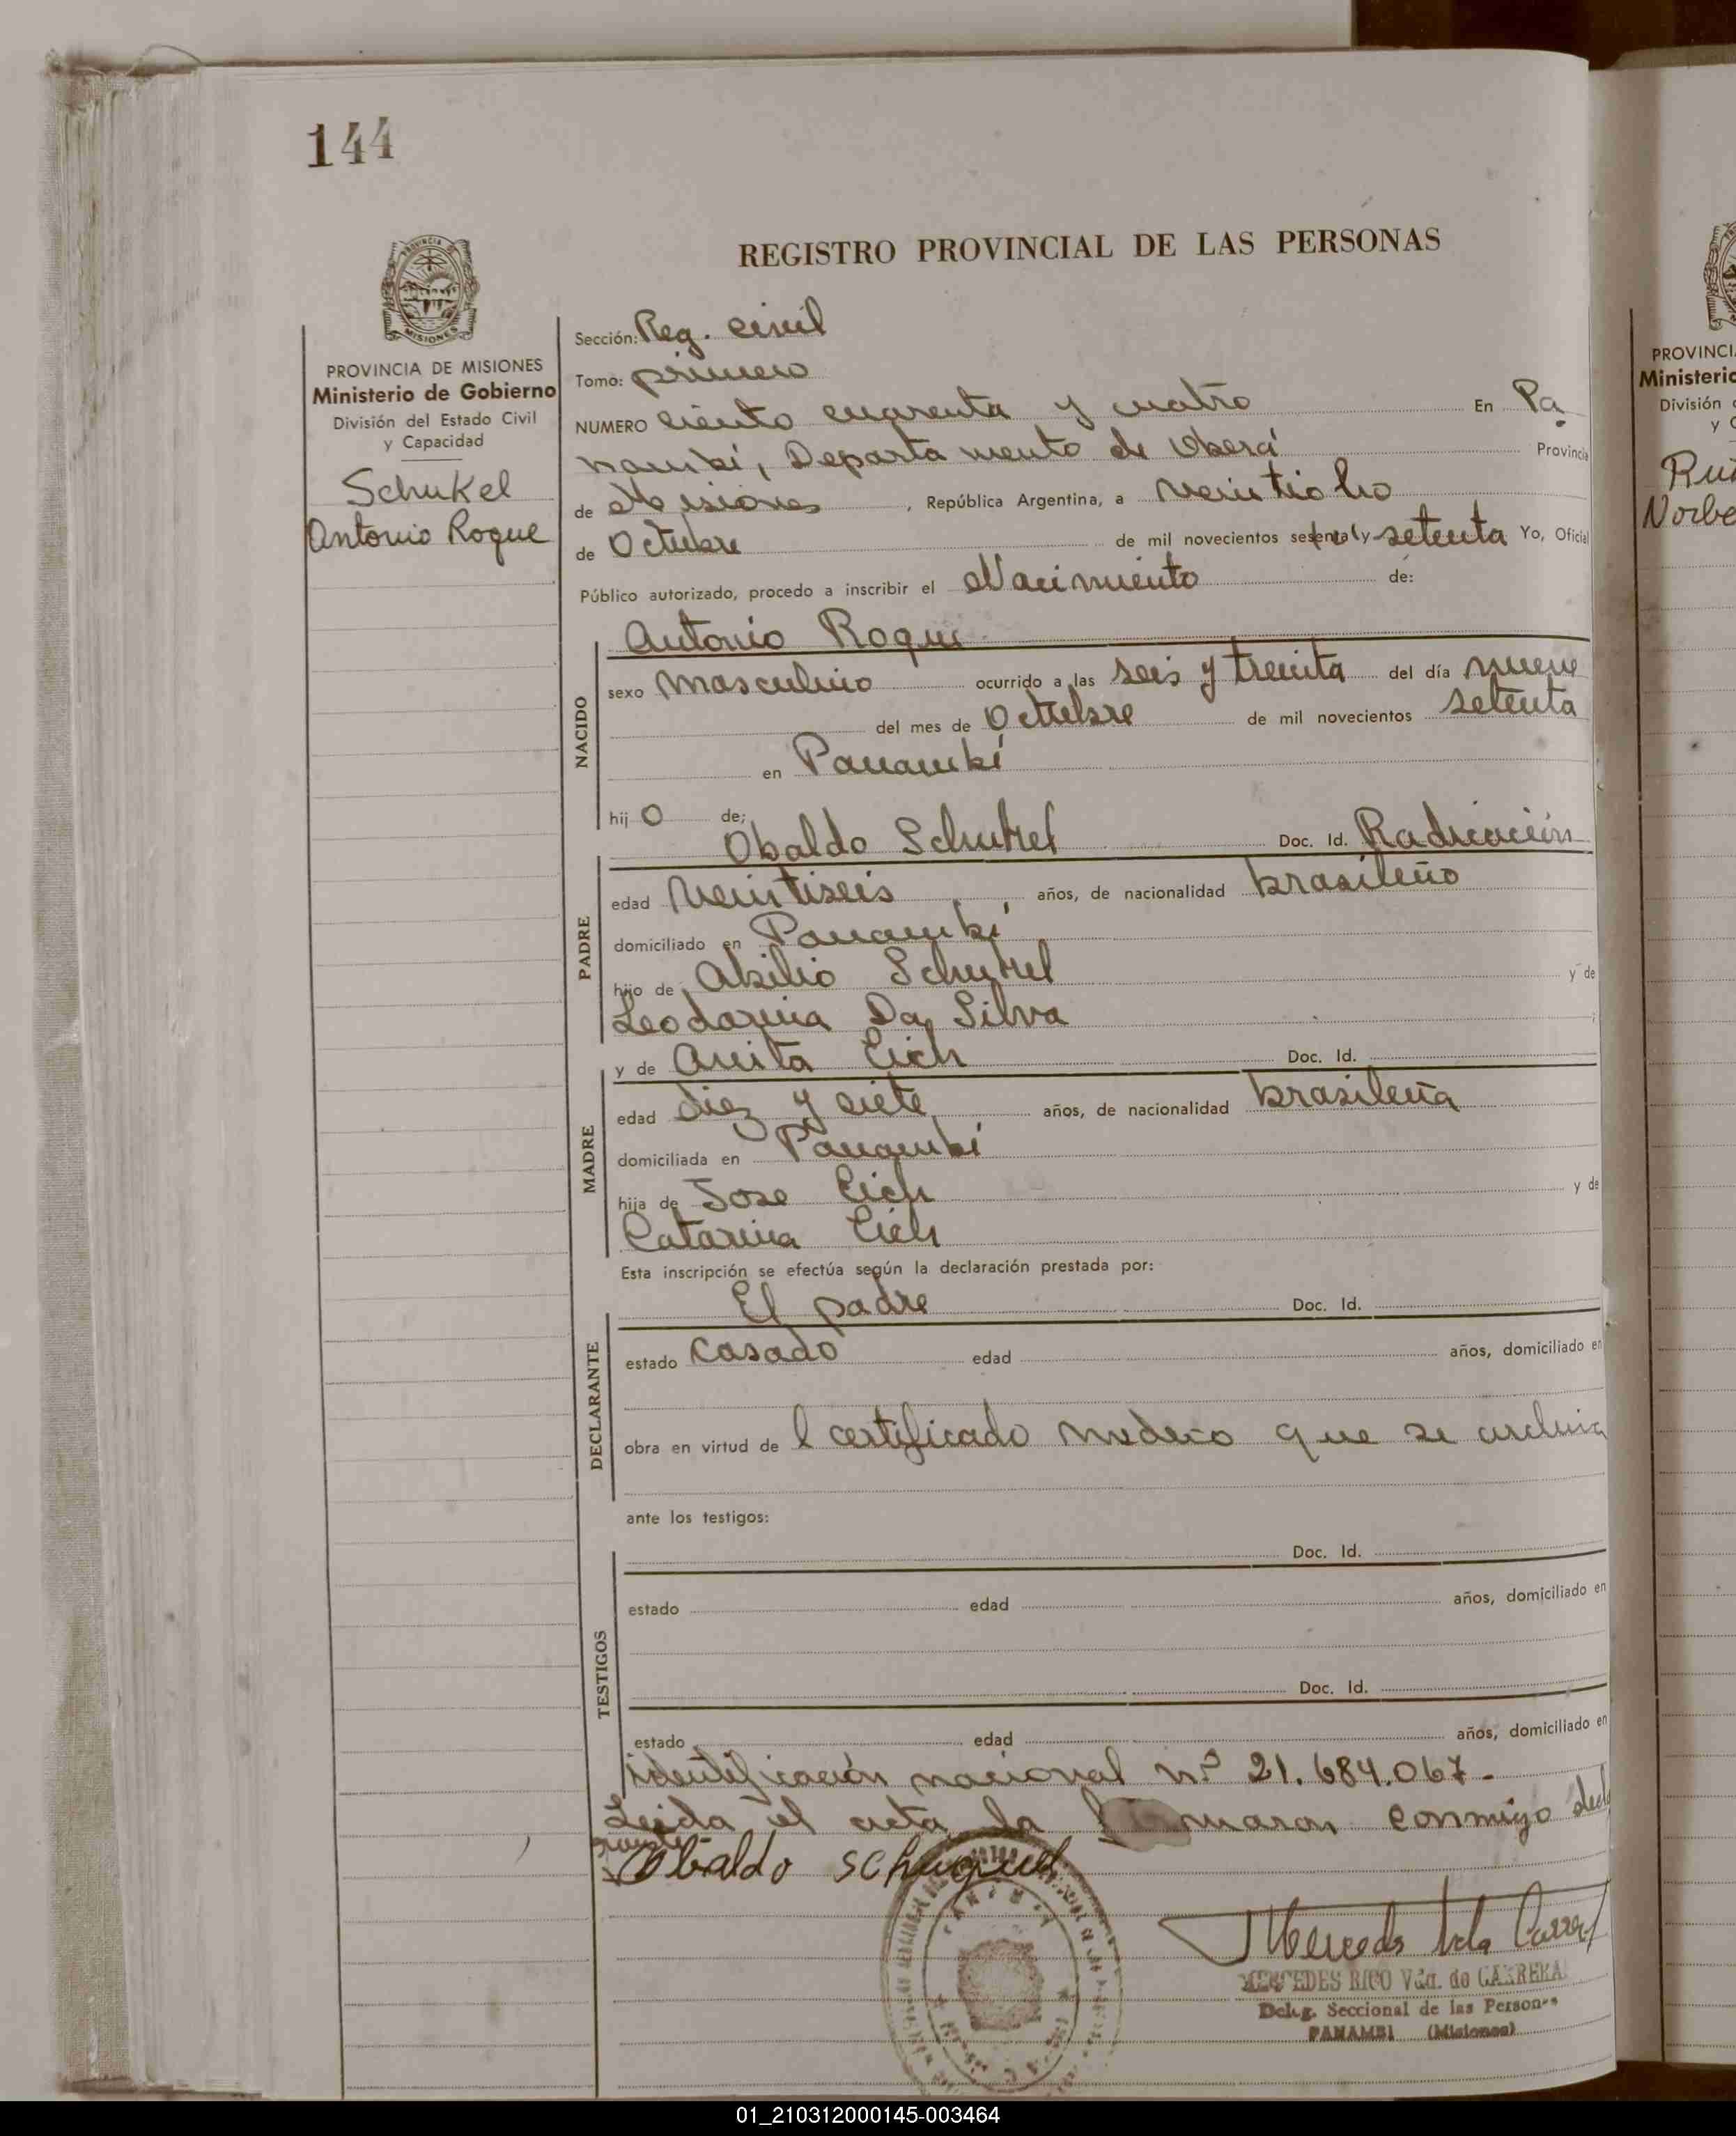 144
REGISTRO PROVINCIAL DE LAS PERSONAS
PROVINCIA DE MISIONES
Ministerio de Gobierno
División del Estado Civil
y Capacidad
Schukel
Antonio Roque
Sección: Reg. civil
Tomo: primero
NUMERO ciento cuarenta y cuatro En Pa
nambí, Departamento de Oberá Provincia
de Misiones, República Argentina, a veintiocho
de Octubre de mil novecientos sesenta y setenta Yo, Oficial
Público autorizado, procedo a inscribir el Nacimiento de:
Antonio Roque
NACIDO
sexo masculino ocurrido a las seis y treinta del día nueve
del mes de Octubre de mil novecientos setenta
en Panambí
hij o de;
Obaldo Schukel Doc. Id. Radicación
PADRE
edad veintiseis años, de nacionalidad brasileño
domiciliado en Panambí
hijo de Abilio Schukel y de
Leodarina Da Silva
y de Anita Eich Doc. Id.
MADRE
edad diez y siete años, de nacionalidad brasileña
domiciliada en Panambí
hija de Jose Eich y de
Catarina Eich
Esta inscripción se efectúa según la declaración prestada por:
El padre Doc. Id.
DECLARANTE
estado casado edad años, domiciliado en
obra en virtud de l certificado medico que se archiva
ante los testigos:
Doc. Id.
TESTIGOS
estado edad años, domiciliado en
Doc. Id.
estado edad años, domiciliado en
identificación nacional nº 21.684.067-
Leida el acta, la conmigo
Obaldo schuquel
MERCEDES RICO Vda. de CARRERA
Deleg. Seccional de las Personas
PANAMBI (Misiones)
PROVINCI
Ministerio
División
y
Norbe
01_210312000145-003464